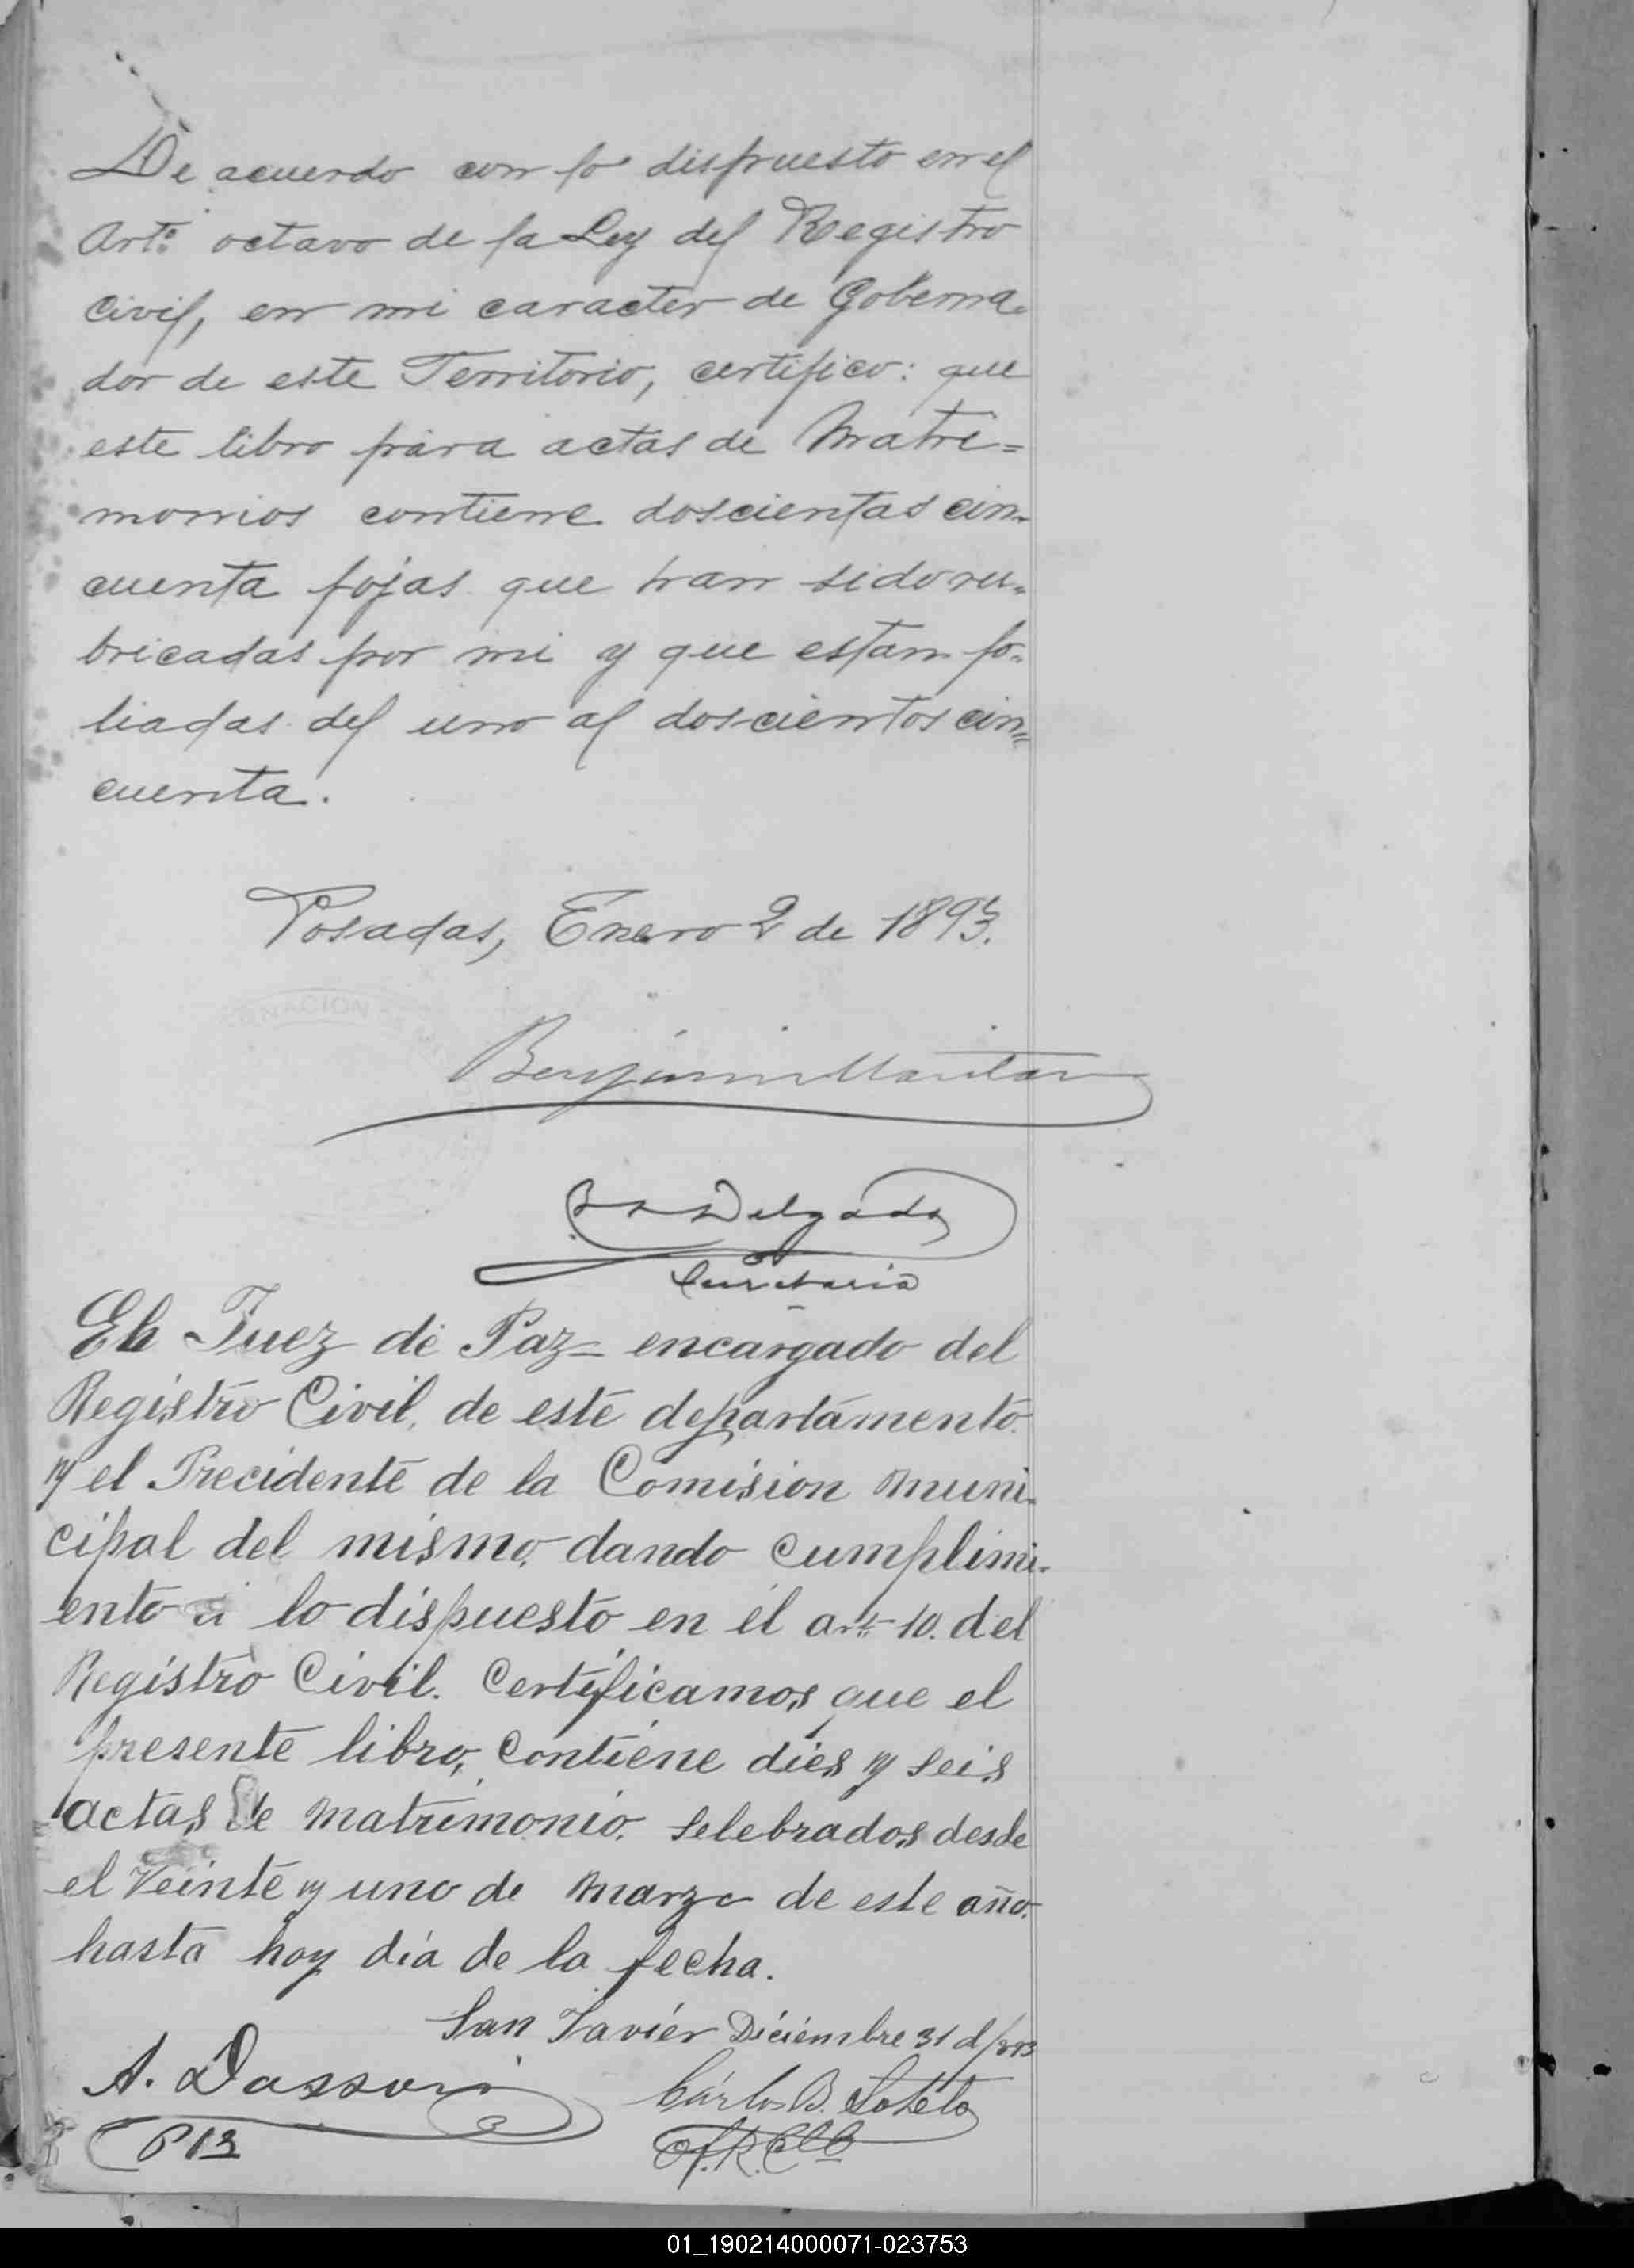 De acuerdo con lo dispuesto en el
Artº octavo de la Ley del Registro
Civil, en mi caracter de Goberna-
dor de este Territorio, certifico: que
este libro para actas de Matri=
monios contiene doscientas cin-
cuenta fojas que han sido ru-
bricadas por mi y que estan fo-
liadas del uno al doscientos cin=
cuenta.
Posadas, Enero 2 de 1893.
RNACION
Benjamin
Delgado
Secretario
El Juez de Paz encargado del
Registro Civil, de este departamento
y el Precidente de la Comision Muni-
cipal del mismo, dando cumplimi-
ento a lo dispuesto en el art 10. del
Registro Civil. Certificamos que el
presente libro, contiene dies y seis
actas de Matrimonio. selebrados desde
el Veinte y uno de Marzo de este año.
hasta hoy dia de la fecha.
San Javier Diciembre 31 d/893
A. Dassori Cárlos B.
01_190214000071-023753